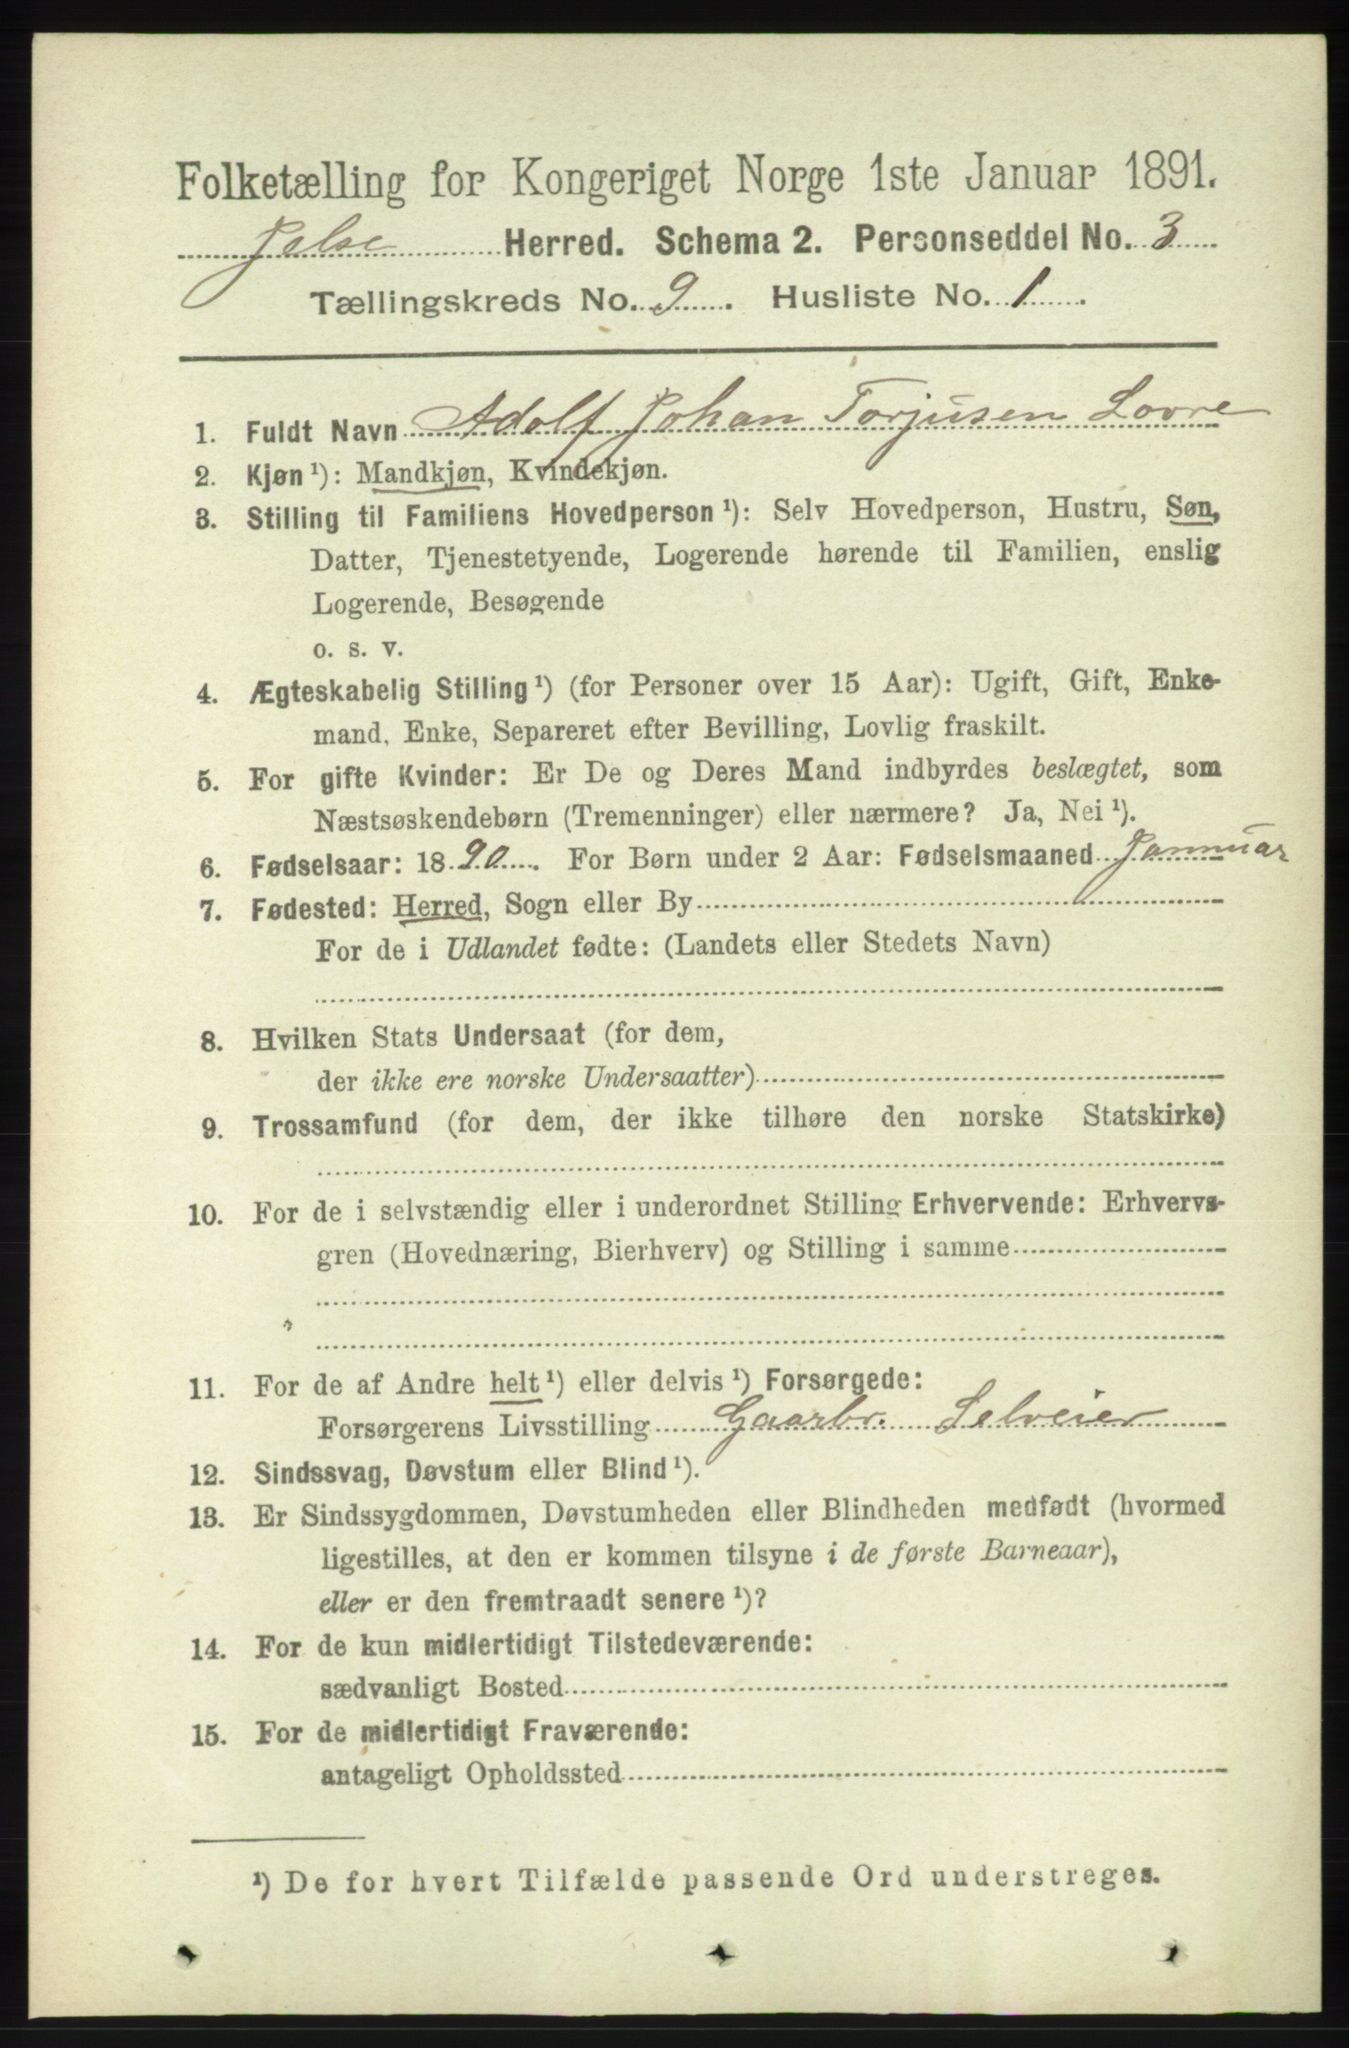 Folketælling for Kongeriget Norge 1ste Januar 1891.
Jelse Herred. Schema 2. Personseddel No. 3
Tællingskreds No. 9. Husliste No. 1.
1. Fuldt Navn Adolf Johan Torjusen Lovre
2. Kjøn ¹): Mandkjøn, Kvindekjøn.
3. Stilling til Familiens Hovedperson ¹): Selv Hovedperson, Hustru, Søn,
Datter, Tjenestetyende, Logerende hørende til Familien, enslig
Logerende, Besøgende
o. s. v.
4. Ægteskabelig Stilling ¹) (for Personer over 15 Aar): Ugift, Gift, Enke-
mand, Enke, Separeret efter Bevilling, Lovlig fraskilt.
5. For gifte Kvinder: Er De og Deres Mand indbyrdes beslægtet, som
Næstsøskendebørn (Tremenninger) eller nærmere? Ja, Nei ¹).
6. Fødselsaar: 1890. For Børn under 2 Aar: Fødselsmaaned Januar
7. Fødested: Herred, Sogn eller By
For de i Udlandet fødte: (Landets eller Stedets Navn)
8. Hvilken Stats Undersaat (for dem,
der ikke ere norske Undersaatter)
9. Trossamfund (for dem, der ikke tilhøre den norske Statskirke)
10. For de i selvstændig eller i underordnet Stilling Erhvervende: Erhvervs-
gren (Hovednæring, Bierhverv) og Stilling i samme
11. For de af Andre helt ¹) eller delvis ¹) Forsørgede:
Forsørgerens Livsstilling Gaarbr. Selveier
12. Sindssvag, Døvstum eller Blind ¹).
13. Er Sindssygdommen, Døvstumheden eller Blindheden medfødt (hvormed
ligestilles, at den er kommen tilsyne i de første Barneaar),
eller er den fremtraadt senere ¹)?
14. For de kun midlertidigt Tilstedeværende:
sædvanligt Bosted
15. For de midlertidigt Fraværende:
antageligt Opholdssted
¹) De for hvert Tilfælde passende Ord understreges.